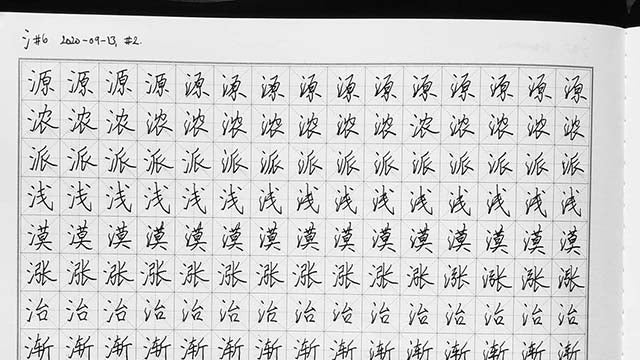 氵#6 2020-09-13, #2.
源源源源源源源源源源源源源源源
浓浓浓浓浓浓浓浓浓浓浓浓浓浓浓
派派派派派派派派派派派派派派派
浅浅浅浅浅浅浅浅浅浅浅浅浅浅浅
漠漠漠漠漠漠漠漠漠漠漠漠漠漠漠
涨涨涨涨涨涨涨涨涨涨涨涨涨涨涨
治治治治治治治治治治治治治治治
渐渐渐渐渐渐渐渐渐渐渐渐渐渐渐